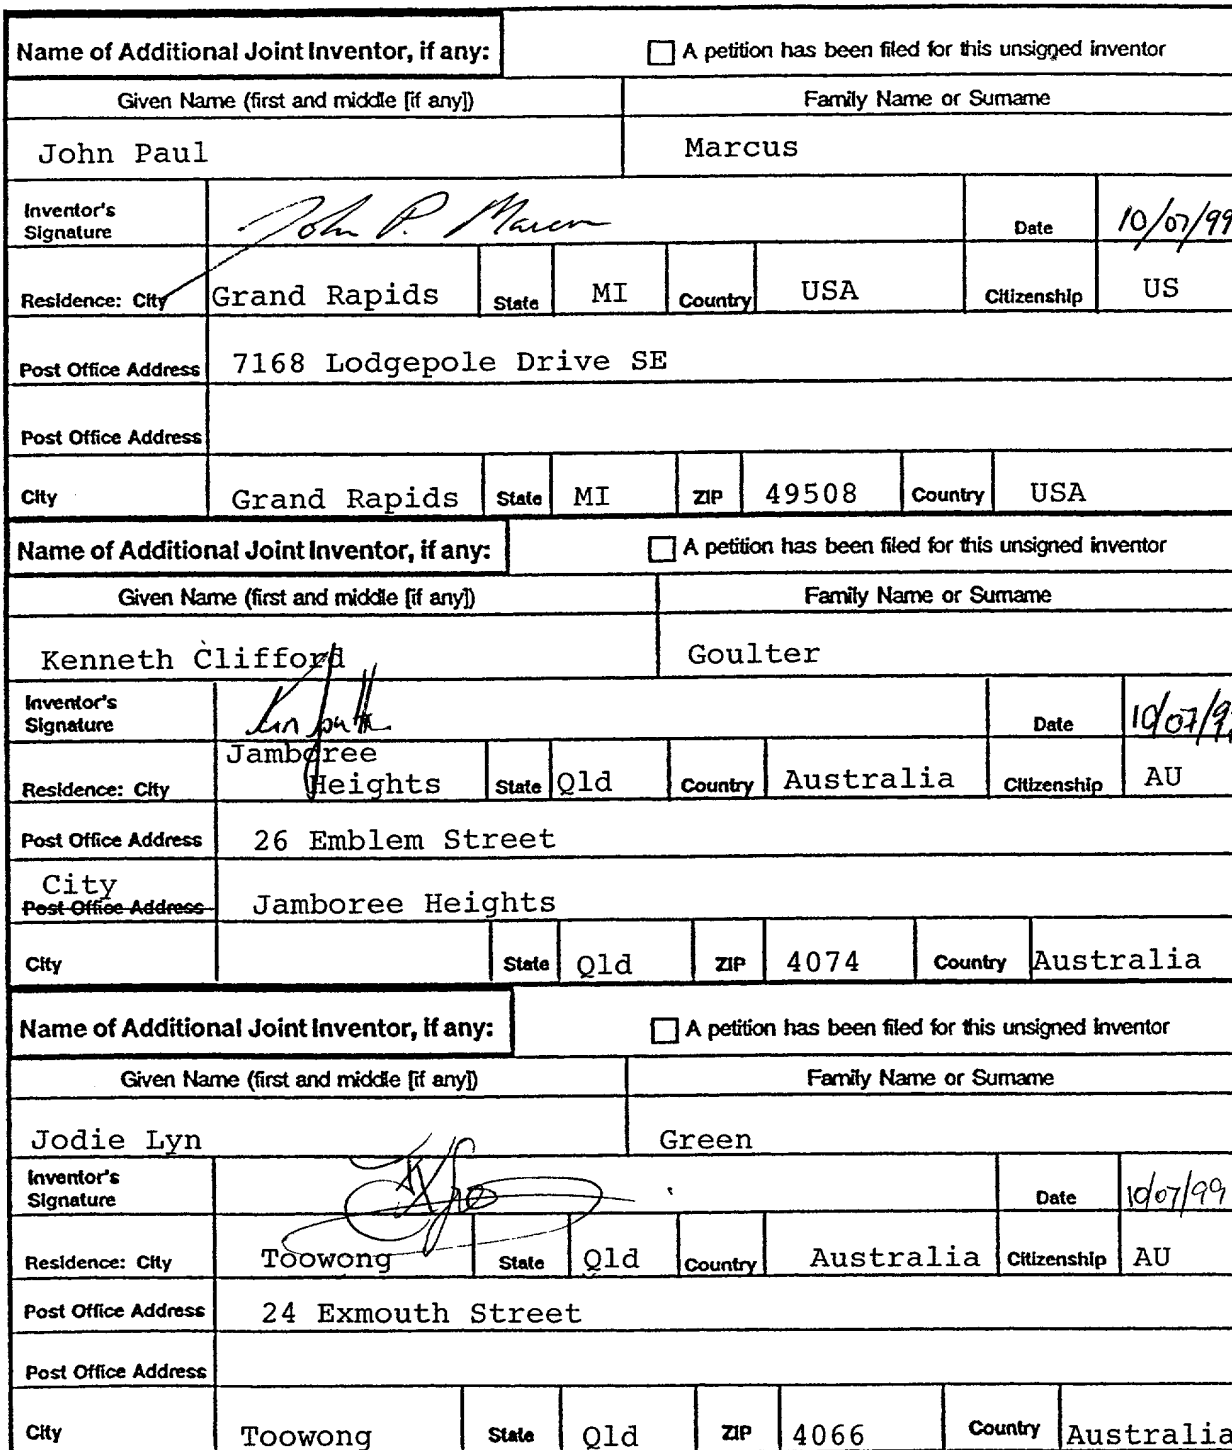 Name of Additional Joint Inventor, if any: A petition has been filed for this unsigned inventor
Given Name (first and middle [if any]) Family Name or Surname
John Paul Marcus
Inventor's Signature John P. Marcus Date 10/07/99
Residence: City Grand Rapids State MI Country USA Citizenship US
Post Office Address 7168 Lodgepole Drive SE
Post Office Address
City Grand Rapids State MI ZIP 49508 Country USA
Name of Additional Joint Inventor, if any: A petition has been filed for this unsigned inventor
Given Name (first and middle [if any]) Family Name or Surname
Kenneth Clifford Goulter
Inventor's Signature Date 10/07/9
Residence: City Jamboree Heights State Qld Country Australia Citizenship AU
Post Office Address 26 Emblem Street
City
Post Office Address Jamboree Heights
City State Qld ZIP 4074 Country Australia
Name of Additional Joint Inventor, if any: A petition has been filed for this unsigned inventor
Given Name (first and middle [if any]) Family Name or Surname
Jodie Lyn Green
Inventor's Signature Date 10/07/99
Residence: City Toowong State Qld Country Australia Citizenship AU
Post Office Address 24 Exmouth Street
Post Office Address
City Toowong State Qld ZIP 4066 Country Australia